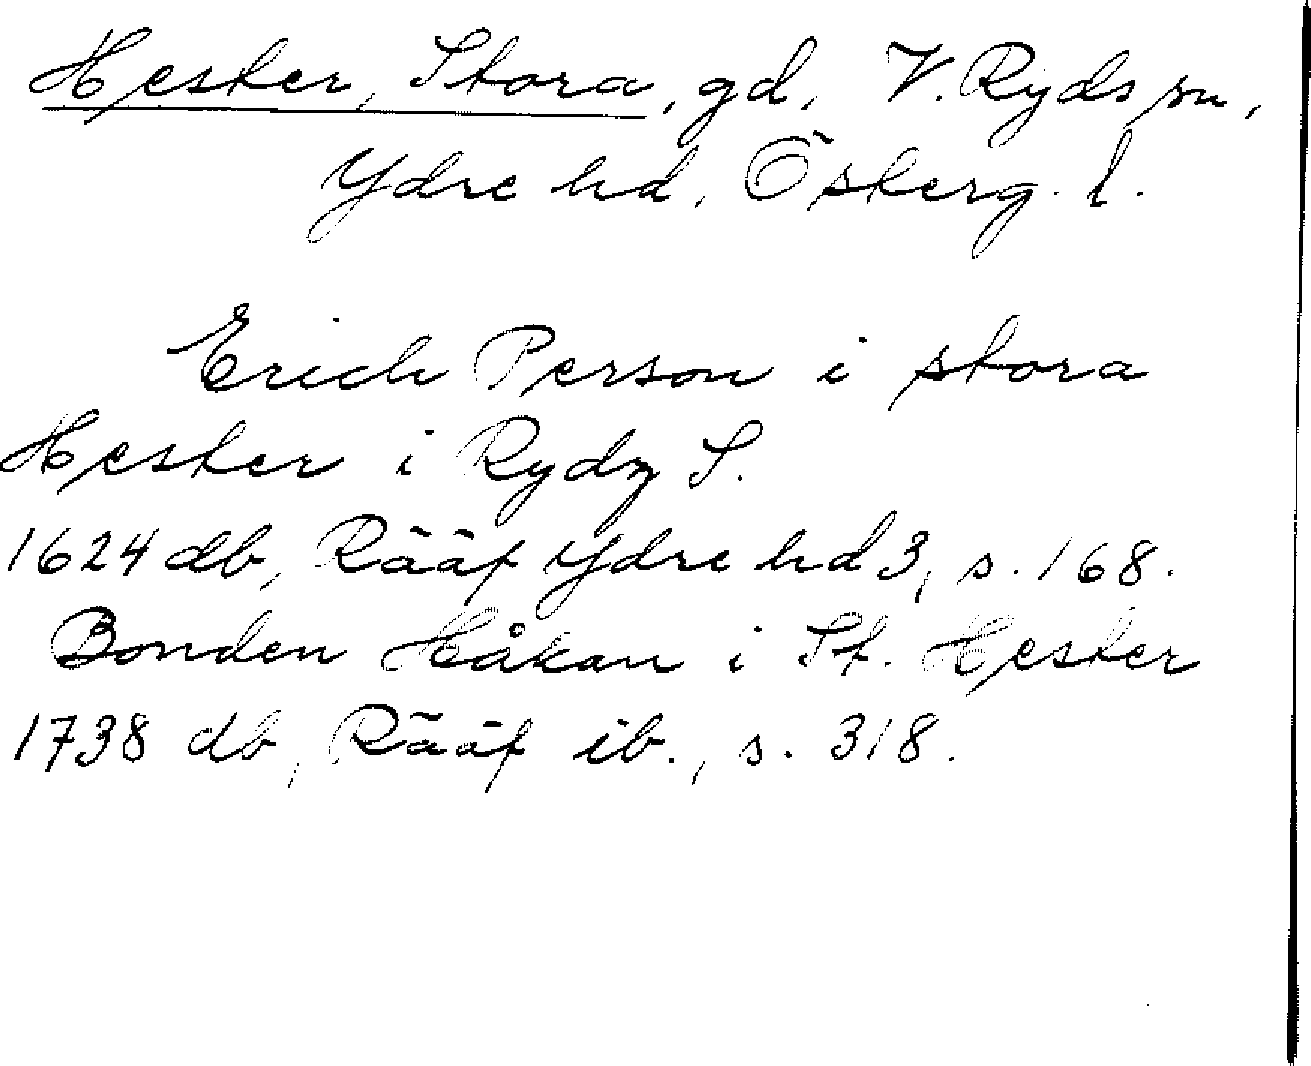 Hester, Stora, gd, V. Ryds sn,
Ydre hd, Österg. l.
Erich Person i stora
Hester i Rydz S.
1624 db, Rääf Ydre hd 3, s. 168.
Bonden Håkan i St. Hester
1738 db, Rääf ib., s. 318.